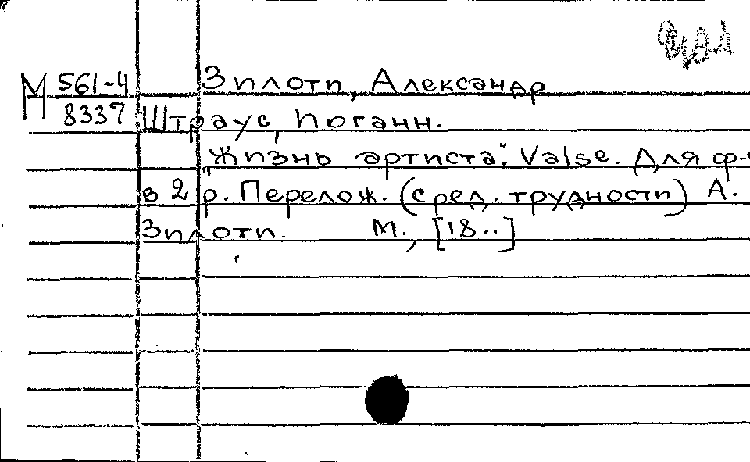 М 561-4
8337
Зилоти, Александр
Штраус, Иоганн.
"Жизнь артиста". Valse. Для ф-
в 2 р. Перелож. (сред. трудности) А.
Зилоти. М., [18..]